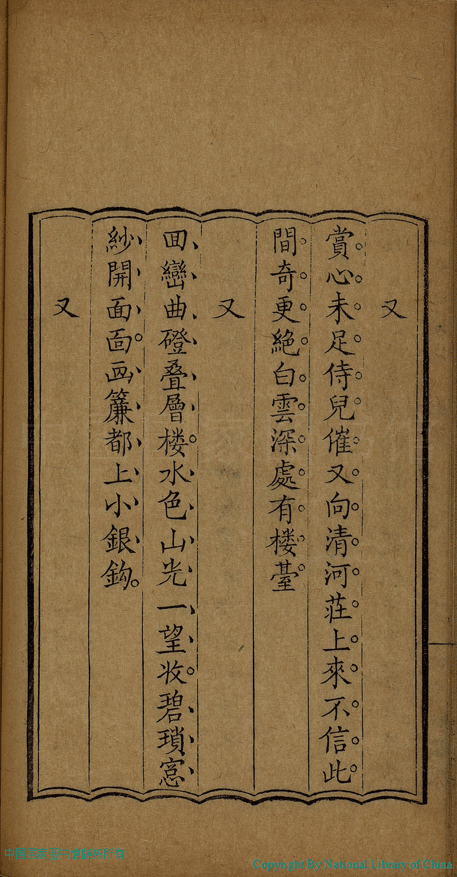 又
賞心未足侍兒催又向清河莊上來不信此
間奇更絕白雲深處有楼臺
又
回巒曲磴叠層楼水色山光一望收碧瑣窓
紗開面面画簾都上小銀鈎
又
Copyright By National Library of China